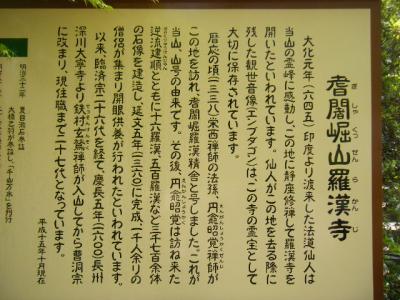 耆闍崛山羅漢寺
ぎしゃくっせんらかんじ
大化元年(六四五)印度より渡来した法道仙人は
当山の霊峰に感動し、この地に静座修禅して羅漢寺を
開いたといわれています。仙人がこの地を去る際に
残した観世音像(エンブダゴン)は、この寺の霊宝として
大切に保存されています。
暦応の頃(一三三八)栄西禅師の法孫、円龕昭覚禅師が
この地を訪れ、耆闍崛羅漢精舎と号しました。これが
当山、山号の由来です。その後、円龕昭覚は訪ね来た
逆流建順とともに十六羅漢、五百羅漢など三千七百余体
の石像を建造し、延文五年(一三六〇)に完成、一千人余りの
僧侶が集まり開眼供養が行われたといわれています。
以来、臨済宗二十六代を経て、慶長五年(一六〇〇)長州
深川大寧寺より鉄村玄鷟禅師が入山してから曹洞宗
に改まり、現住職まで二十七代となっています。
平成十五年十月現在